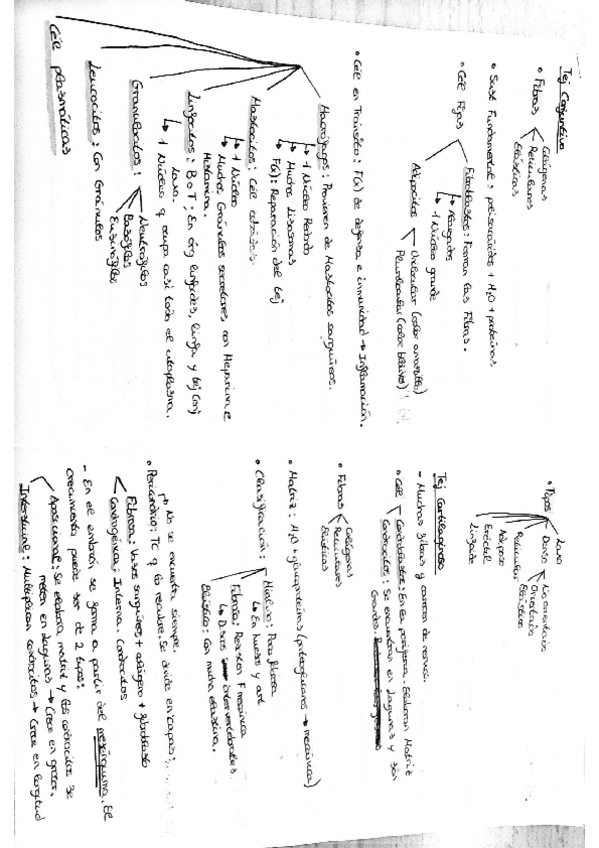 Tej Conjuntivo
• Fibras
Colágenas
Reticulares
Elásticas
• Sust Fundamental: polisacáridos + H2O + proteínas
• Cél Fijas
Fibroblastos: Forman las Fibras.
↳ Alargados
↳ 1 Núcleo grande
Adipocitos
Unilocular (color amarillo)
Plurilocular (color
• Cél en Tránsito: F(x) de defensa e inmunidad → Inflamación.
Macrófagos: Provienen de sanguíneos.
↳ 1 Núcleo Redondo
↳ Muchos Lisosomas
↳ F(x): Reparación del tej
Mastocitos: Cél
↳ 1 Núcleo
↳ Muchos Gránulos secretores con Heparina e
Histamina.
Linfocitos: B o T: En órg linfoides, linfa y tej conj
Laxo.
↳ 1 Núcleo q ocupa casi todo el citoplasma.
Granulocitos:
Neutrófilos
Basófilos
Eosinófilos
Leucocitos: Con Gránulos
Cél plasmáticas
• Tipos
Laxo
Denso
No orientado
Orientado
Elástico
Reticular
Adiposo
Eréctil
Linfoide
Tej Cartilaginoso
- Muchas fibras y carecen de
• Cél
Condroblastos: En la periferia. Elaboran Matriz
Condrocitos: Se encuentran en lagunas y son
Grandes
• Fibras
Colágenas
Reticulares
Elásticas
• Matriz: H2O + glucoproteínas (proteoglucanos → mecánica)
• Clasificación:
Hialino: Poca fibrosa
↳ En huesos y art
Fibroso: Resisten F mecánica
↳ Discos intervertebrales
Elástico: Con mucha elastina.
↱ No se encuentra siempre.
• Pericondrio: TC q lo recubre. Se divide en capas:
Fibrosa: Vasos sanguíneos + colágeno + fibroblasto
Condrogénica: Interna. Condrocitos
- En el embrión se forma a partir del mesénquima. El
crecimiento puede ser de 2 tipos:
Aposicional: Se elabora matriz y los condrocitos se
meten en lagunas → Crece en grosor.
Intersticial: Multiplican condrocitos → Crece en longitud